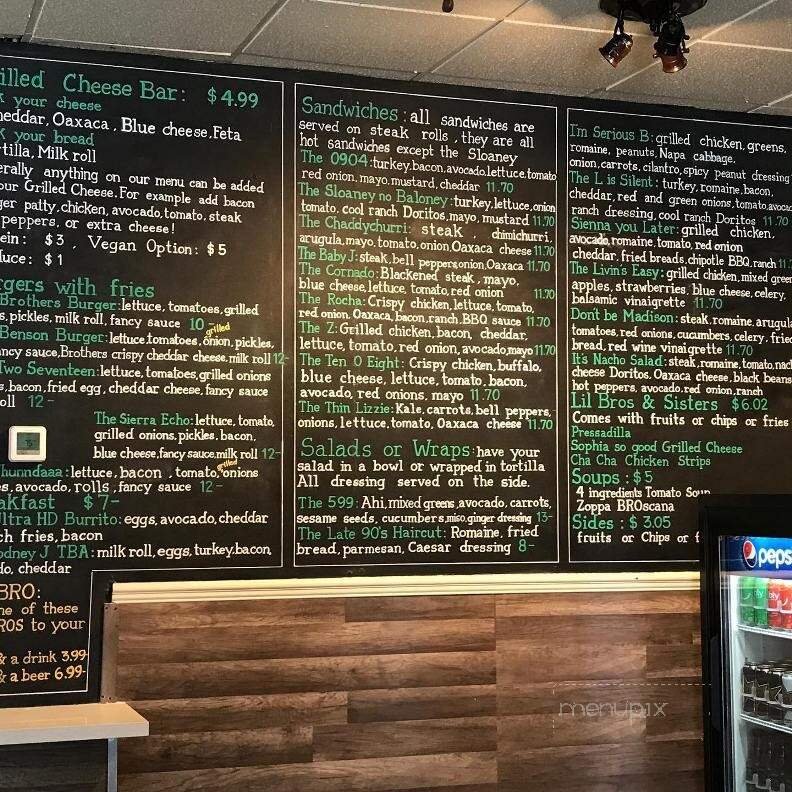 illed Cheese Bar: $4.99
k your cheese
heddar, Oaxaca, Blue cheese, Feta
k your bread
tilla, Milk roll
erally anything on our menu can be added
our Grilled Cheese. For example add bacon
ger patty, chicken, avocado, tomato, steak
peppers, or extra cheese!
ein: $3, Vegan Option: $5
uce: $1
rgers with fries
Brothers Burger: lettuce, tomatoes, grilled
s, pickles, milk roll, fancy sauce 10
grilled
Benson Burger: lettuce, tomatoes, onion, pickles,
ancy sauce, Brothers crispy cheddar cheese, milk roll 12-
Two Seventeen: lettuce, tomatoes, grilled onions
s, bacon, fried egg, cheddar cheese, fancy sauce
oll 12-
The Sierra Echo: lettuce, tomato,
grilled onions, pickles, bacon,
blue cheese, fancy sauce, milk roll 12-
grilled
hunndaaa: lettuce, bacon, tomato, onions
es, avocado, rolls, fancy sauce 12-
akfast $7-
Ultra HD Burrito: eggs, avocado, cheddar
ch fries, bacon
odney J TBA: milk roll, eggs, turkey, bacon,
do, cheddar
BRO:
ne of these
ROS to your
& a drink 3.99-
& a beer 6.99-
Sandwiches: all sandwiches are
served on steak rolls, they are all
hot sandwiches except the Sloaney
The 0904: turkey, bacon, avocado, lettuce, tomato
red onion, mayo, mustard, cheddar 11.70
The Sloaney no Baloney: turkey, lettuce, onion
tomato, cool ranch Doritos, mayo, mustard 11.70
The Chaddychurri: steak, chimichurri,
arugula, mayo, tomato, onion, Oaxaca cheese 11.70
The Baby J: steak, bell peppers, onion, Oaxaca 11.70
The Cornado: Blackened steak, mayo,
blue cheese, lettuce, tomato, red onion 11.70
The Rocha: Crispy chicken, lettuce, tomato,
red onion, Oaxaca, bacon, ranch, BBQ sauce 11.70
The Z: Grilled chicken, bacon, cheddar,
lettuce, tomato, red onion, avocado, mayo 11.70
The Ten O Eight: Crispy chicken, buffalo,
blue cheese, lettuce, tomato, bacon,
avocado, red onions, mayo 11.70
The Thin Lizzie: Kale, carrots, bell peppers,
onions, lettuce, tomato, Oaxaca cheese 11.70
Salads or Wraps: have your
salad in a bowl or wrapped in tortilla
All dressing served on the side.
The 599: Ahi, mixed greens, avocado, carrots,
sesame seeds, cucumbers, miso, ginger dressing 13-
The Late 90's Haircut: Romaine, fried
bread, parmesan, Caesar dressing 8-
I'm Serious B: grilled chicken, greens,
romaine, peanuts, Napa cabbage,
onion, carrots, cilantro, spicy peanut dressing
The L is Silent: turkey, romaine, bacon,
cheddar, red and green onions, tomato, avoca
ranch dressing, cool ranch Doritos 11.70
Sienna you Later: grilled chicken,
avocado, romaine, tomato, red onion
cheddar, fried breads, chipotle BBQ, ranch 11.7
The Livin's Easy: grilled chicken, mixed green
apples, strawberries, blue cheese, celery,
balsamic vinaigrette 11.70
Don't be Madison: steak, romaine, arugula
tomatoes, red onions, cucumbers, celery, fried
bread, red wine vinaigrette 11.70
It's Nacho Salad: steak, romaine, tomato, nach
cheese Doritos, Oaxaca cheese, black beans
hot peppers, avocado, red onion, ranch
Lil Bros & Sisters $6.02
Comes with fruits or chips or fries
Pressadilla
Sophia so good Grilled Cheese
Cha Cha Chicken Strips
Soups: $5
4 ingredients Tomato Soup
Zoppa BROscana
Sides: $3.05
fruits or Chips or f
peps
menupix